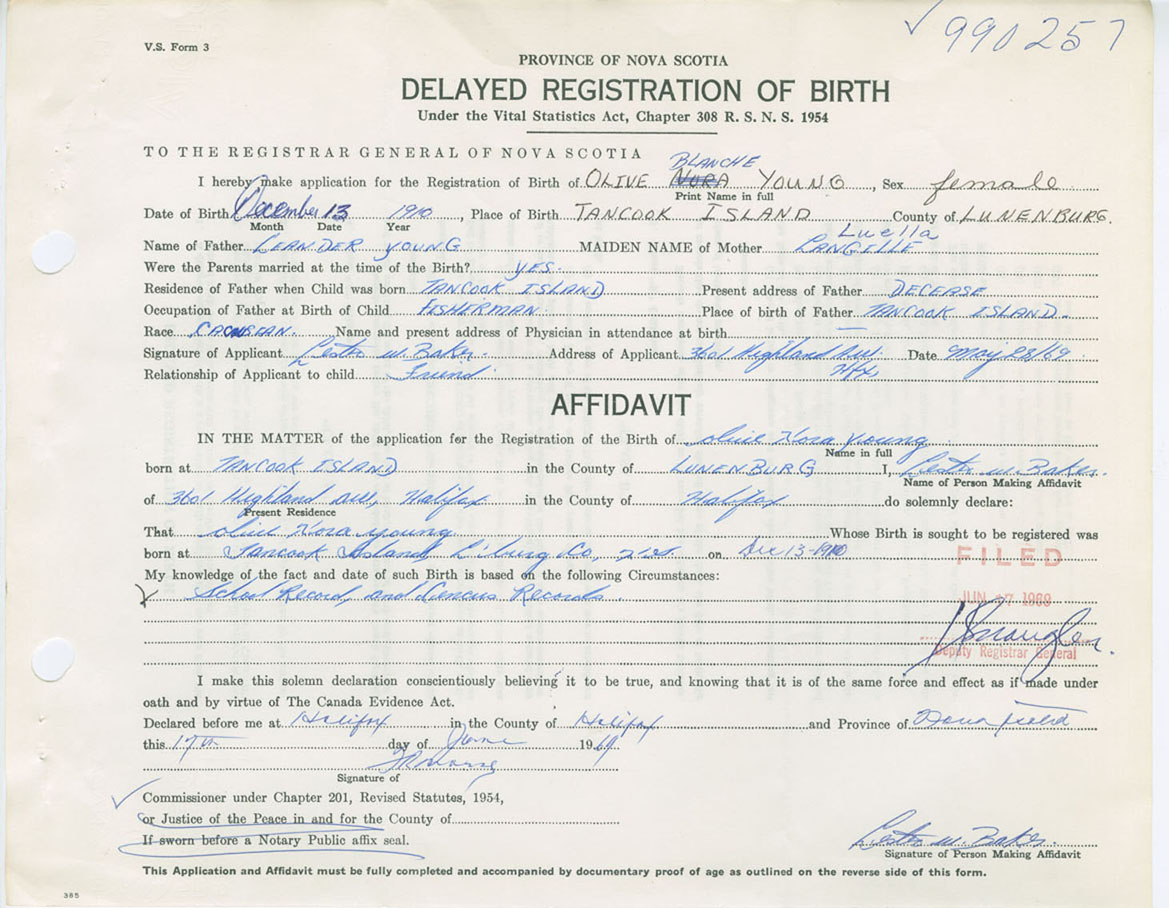 990257
V.S. Form 3
PROVINCE OF NOVA SCOTIA
DELAYED REGISTRATION OF BIRTH
Under the Vital Statistics Act, Chapter 308 R. S. N. S. 1954
TO THE REGISTRAR GENERAL OF NOVA SCOTIA
BLANCHE
I hereby make application for the Registration of Birth of OLIVE NORA YOUNG, Sex female
Print Name in full
Date of Birth December 13 1910, Place of Birth TANCOOK ISLAND County of LUNENBURG.
Month Date Year
Luella
Name of Father LEANDER YOUNG MAIDEN NAME of Mother LANGILLE
Were the Parents married at the time of the Birth? YES.
Residence of Father when Child was born TANCOOK ISLAND Present address of Father DECEASE
Occupation of Father at Birth of Child FISHERMAN Place of birth of Father TANCOOK ISLAND.
Race Name and present address of Physician in attendance at birth —
Signature of Applicant Lester W. Baker. Address of Applicant 3601 Highland Ave. Date May 28/69
Hfx,
Relationship of Applicant to child Friend
AFFIDAVIT
IN THE MATTER of the application for the Registration of the Birth of Olive Nora Young
Name in full
born at TANCOOK ISLAND in the County of LUNENBURG I, Lester W. Baker.
Name of Person Making Affidavit
of 3601 Highland Ave, Halifax in the County of Halifax do solemnly declare:
Present Residence
That Olive Nora Young Whose Birth is sought to be registered was
born at Tancook Island L'burg Co, N.S. on Dec 13-1910
FILED
My knowledge of the fact and date of such Birth is based on the following Circumstances:
School Record, and Cencus Records.
JUN 17 1969
Deputy Registrar General
I make this solemn declaration conscientiously believing it to be true, and knowing that it is of the same force and effect as if made under
oath and by virtue of The Canada Evidence Act.
Declared before me at Halifax in the County of Halifax and Province of Nova Scotia
this 17th day of June 1969
Signature of
Commissioner under Chapter 201, Revised Statutes, 1954,
or Justice of the Peace in and for the County of
If sworn before a Notary Public affix seal.
Lester W. Baker.
Signature of Person Making Affidavit
This Application and Affidavit must be fully completed and accompanied by documentary proof of age as outlined on the reverse side of this form.
385